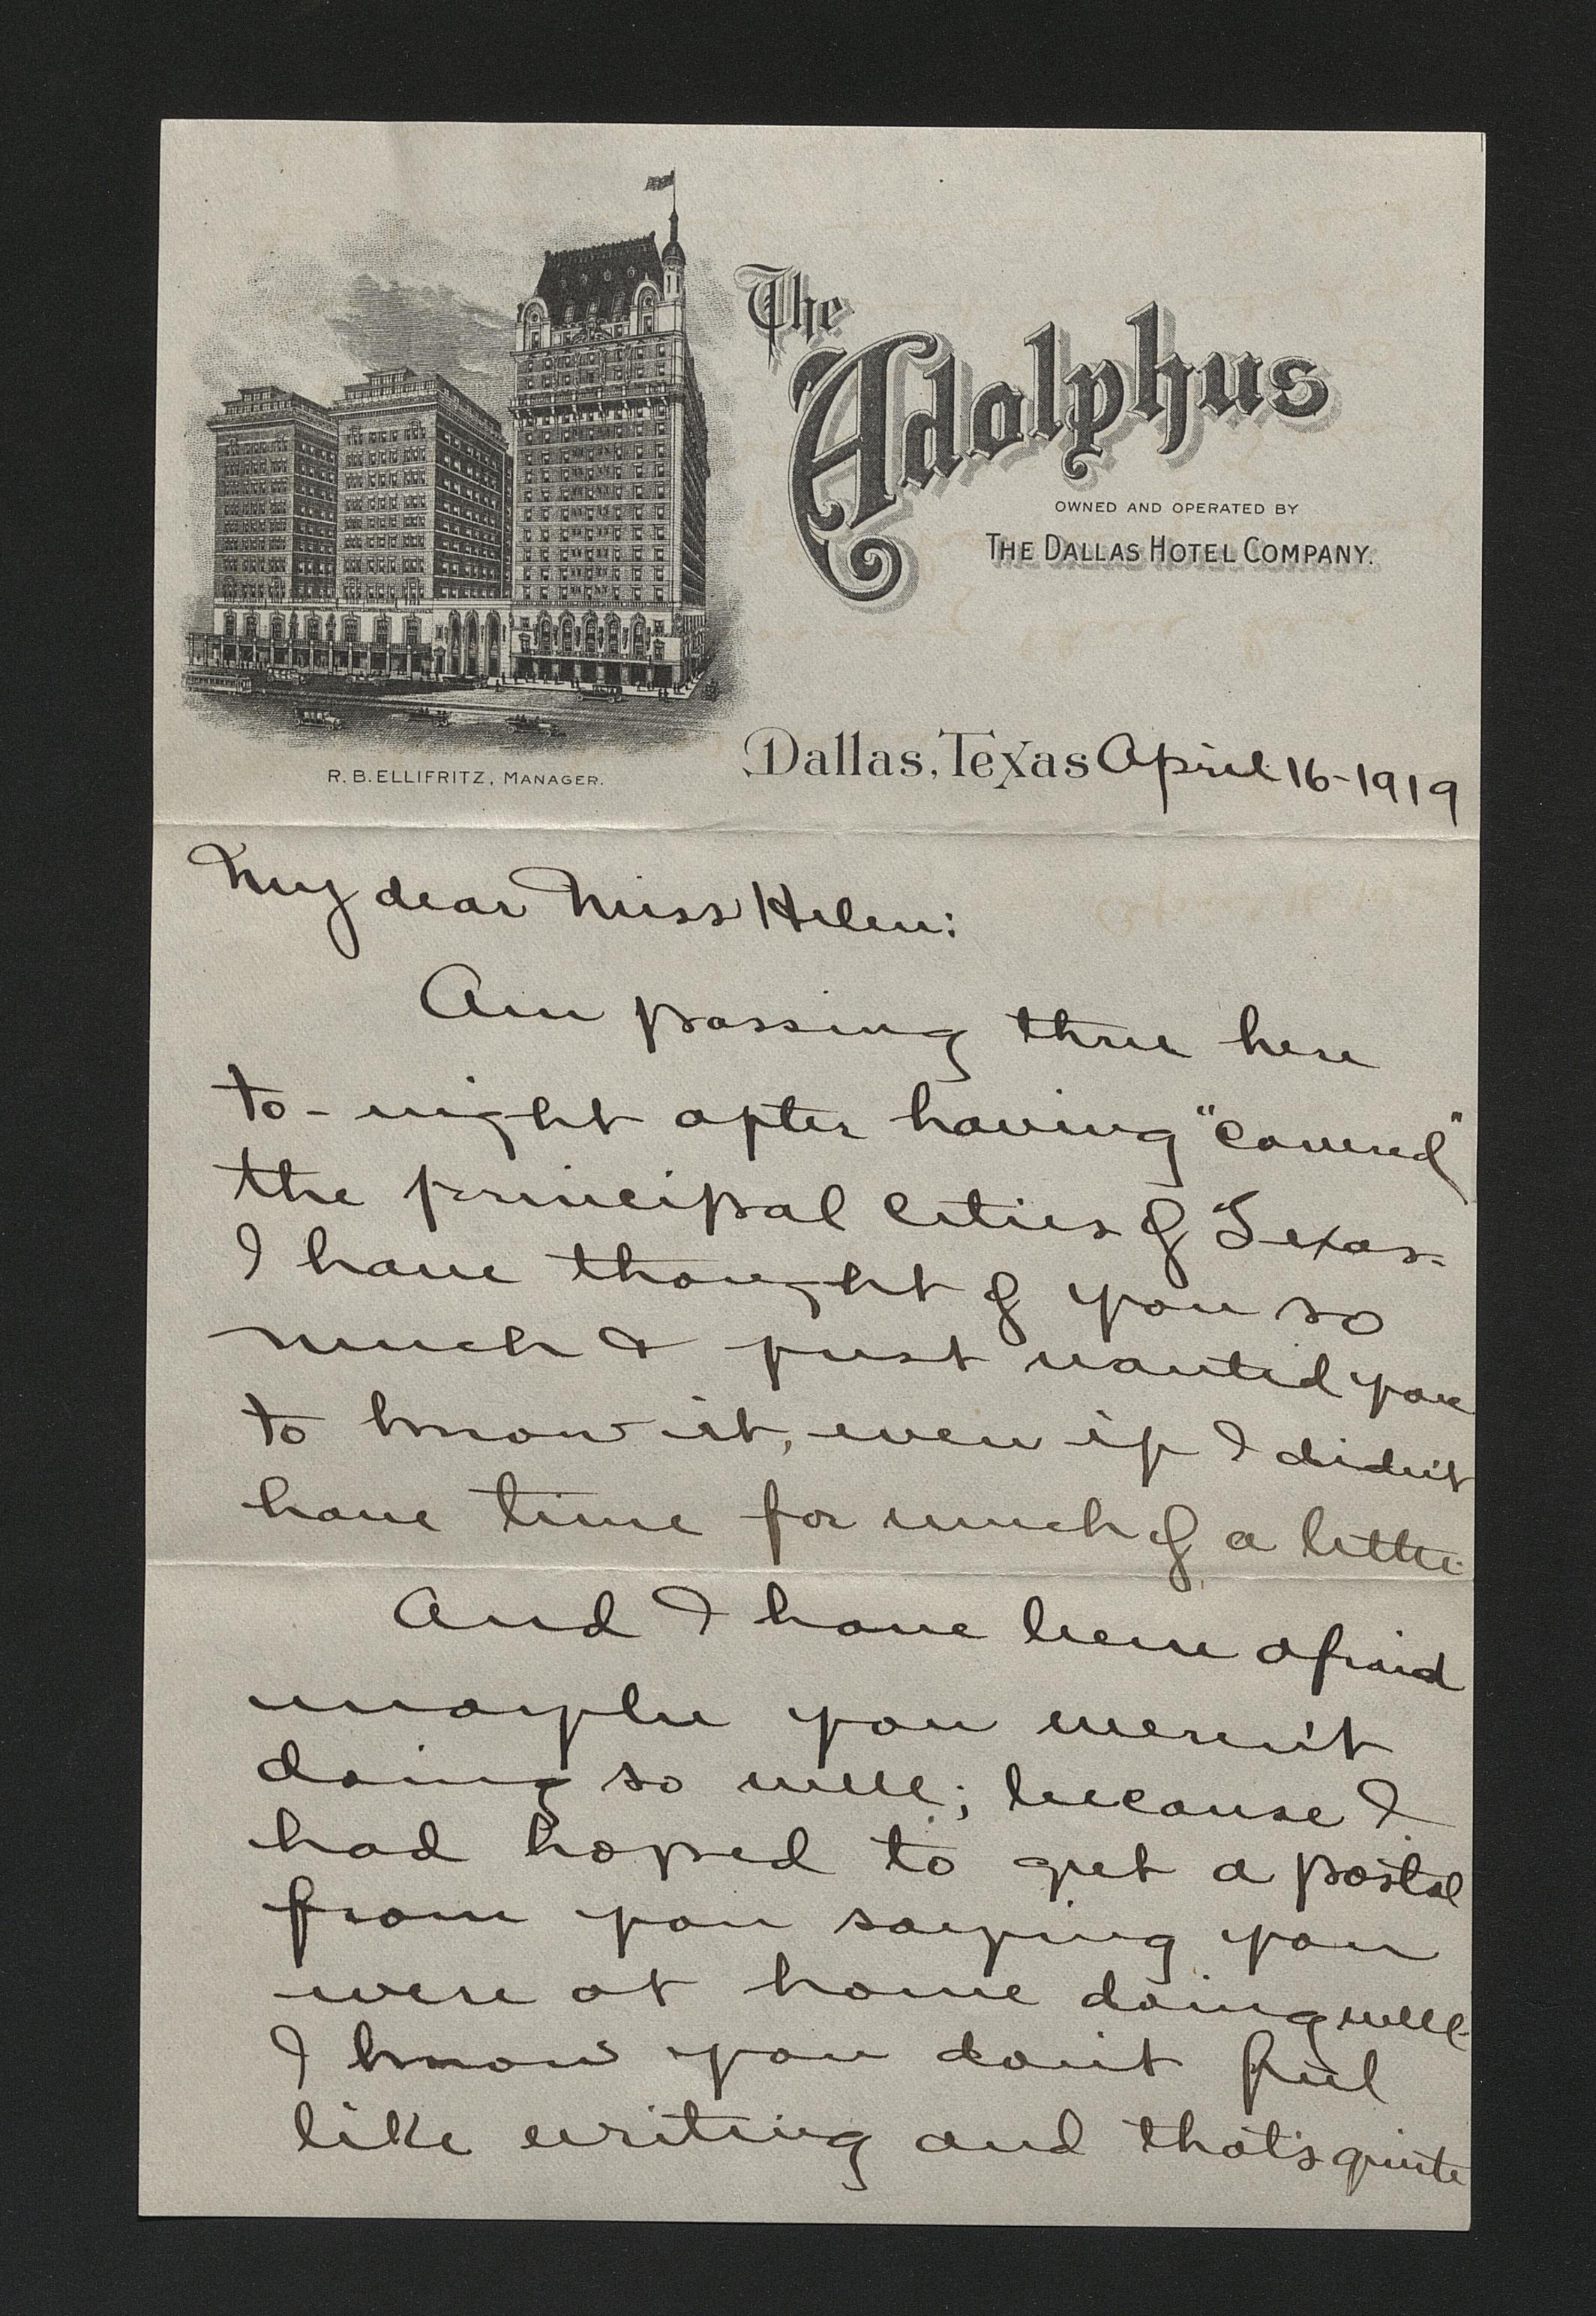 The
Adolphus
OWNED AND OPERATED BY
THE DALLAS HOTEL COMPANY.
R. B. ELLIFRITZ, MANAGER.
Dallas, Texas April 16-1919
My dear Miss Helen:
Am passing thru here
to-night after having "covered"
the principal cities of Texas.
I have thought of you so
much & just wanted you
to know it, even if I didn't
have time for much of a letter.
And I have been afraid
maybe you weren't
doing so well; because I
had hoped to get a postal
from you saying you
were at home doing well.
I know you don't feel
like writing and that's quite